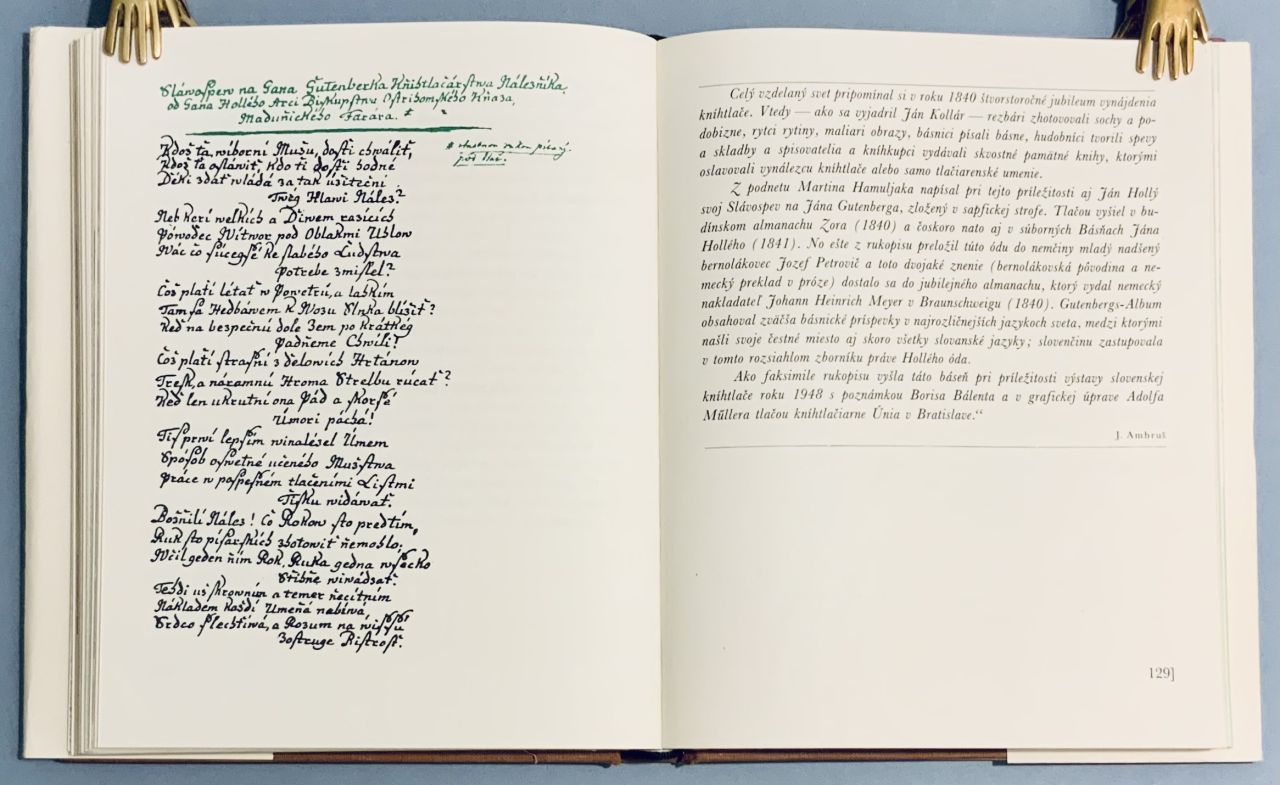 Sláwospew na Gana Gutenberka Kňihtlačárstwa Nálezňika,
od Gana Hollého Arci Biskupstwa Ostrihomského Kňaza,
Maduňického Farára. *
* wlastnou rukou písaný
Kdož ťa, wíborní Mužu, dosti chwáliť,
Kdož ťa osláwiť, kdo ti dosti hodné
Ďeki zdáť wládá za tak úžiteční
Twég Hlawi Nález?
Neb kerí welkích a Diwem razících
Pówodec Wítwor pod Oblakmi Uhlow
Wác čo súcegšé ke slabého Ludstwa
Potrebe zmislel?
Což platí létať w Powetrú, a lahkím
Tam sa Hedbáwem k Wozu Slnka blížiť?
Keď na bezpečnú dole Zem po krátkég
Padňeme Chwíli?
Což platí strašní z ďelowích Hrtánow
Tresk, a náramnú Hroma Strelbu rúcať?
Keď len ukrutní ona Pád a skoršé
Úmori páchá!
Tis prwí lepším winalézel Umem
Spósob oswetné učeného Mužstwa
Práce w pospešném tlačeními Listmi
Tisku widáwať.
Božnilí Nález! Čo Rokow sto predtím,
Ruk sto pisárskích zhotowiť ňemohlo;
Wčil geden ním Rok, Ruka gedna wšecko
Hbiťe wiwádzať.
Tehdi už skrowním a temer ňecítním
Nákladem každí Umeňá nabíwá,
Srdco šlechtiwá, a Rozum na wišší
Zostruge Bistrosť.
Celý vzdelaný svet pripomínal si v roku 1840 štvorstoročné jubileum vynájdenia
kníhtlače. Vtedy — ako sa vyjadril Ján Kollár — rezbári zhotovovali sochy a po-
dobizne, rytci rytiny, maliari obrazy, básnici písali básne, hudobníci tvorili spevy
a skladby a spisovatelia a kníhkupci vydávali skvostné pamätné knihy, ktorými
oslavovali vynálezcu kníhtlače alebo samo tlačiarenské umenie.
Z podnetu Martina Hamuljaka napísal pri tejto príležitosti aj Ján Hollý
svoj Slávospev na Jána Gutenberga, zložený v sapfickej strofe. Tlačou vyšiel v bu-
dínskom almanachu Zora (1840) a čoskoro nato aj v súborných Básňach Jána
Hollého (1841). No ešte z rukopisu preložil túto ódu do nemčiny mladý nadšený
bernolákovec Jozef Petrovič a toto dvojaké znenie (bernolákovská pôvodina a ne-
mecký preklad v próze) dostalo sa do jubilejného almanachu, ktorý vydal nemecký
nakladateľ Johann Heinrich Meyer v Braunschweigu (1840). Gutenbergs-Album
obsahoval zväčša básnické príspevky v najrozličnejších jazykoch sveta, medzi ktorými
našli svoje čestné miesto aj skoro všetky slovanské jazyky; slovenčinu zastupovala
v tomto rozsiahlom zborníku práve Hollého óda.
Ako faksimile rukopisu vyšla táto báseň pri príležitosti výstavy slovenskej
kníhtlače roku 1948 s poznámkou Borisa Bálenta a v grafickej úprave Adolfa
Müllera tlačou kníhtlačiarne Únia v Bratislave.“
J. Ambruš
129]